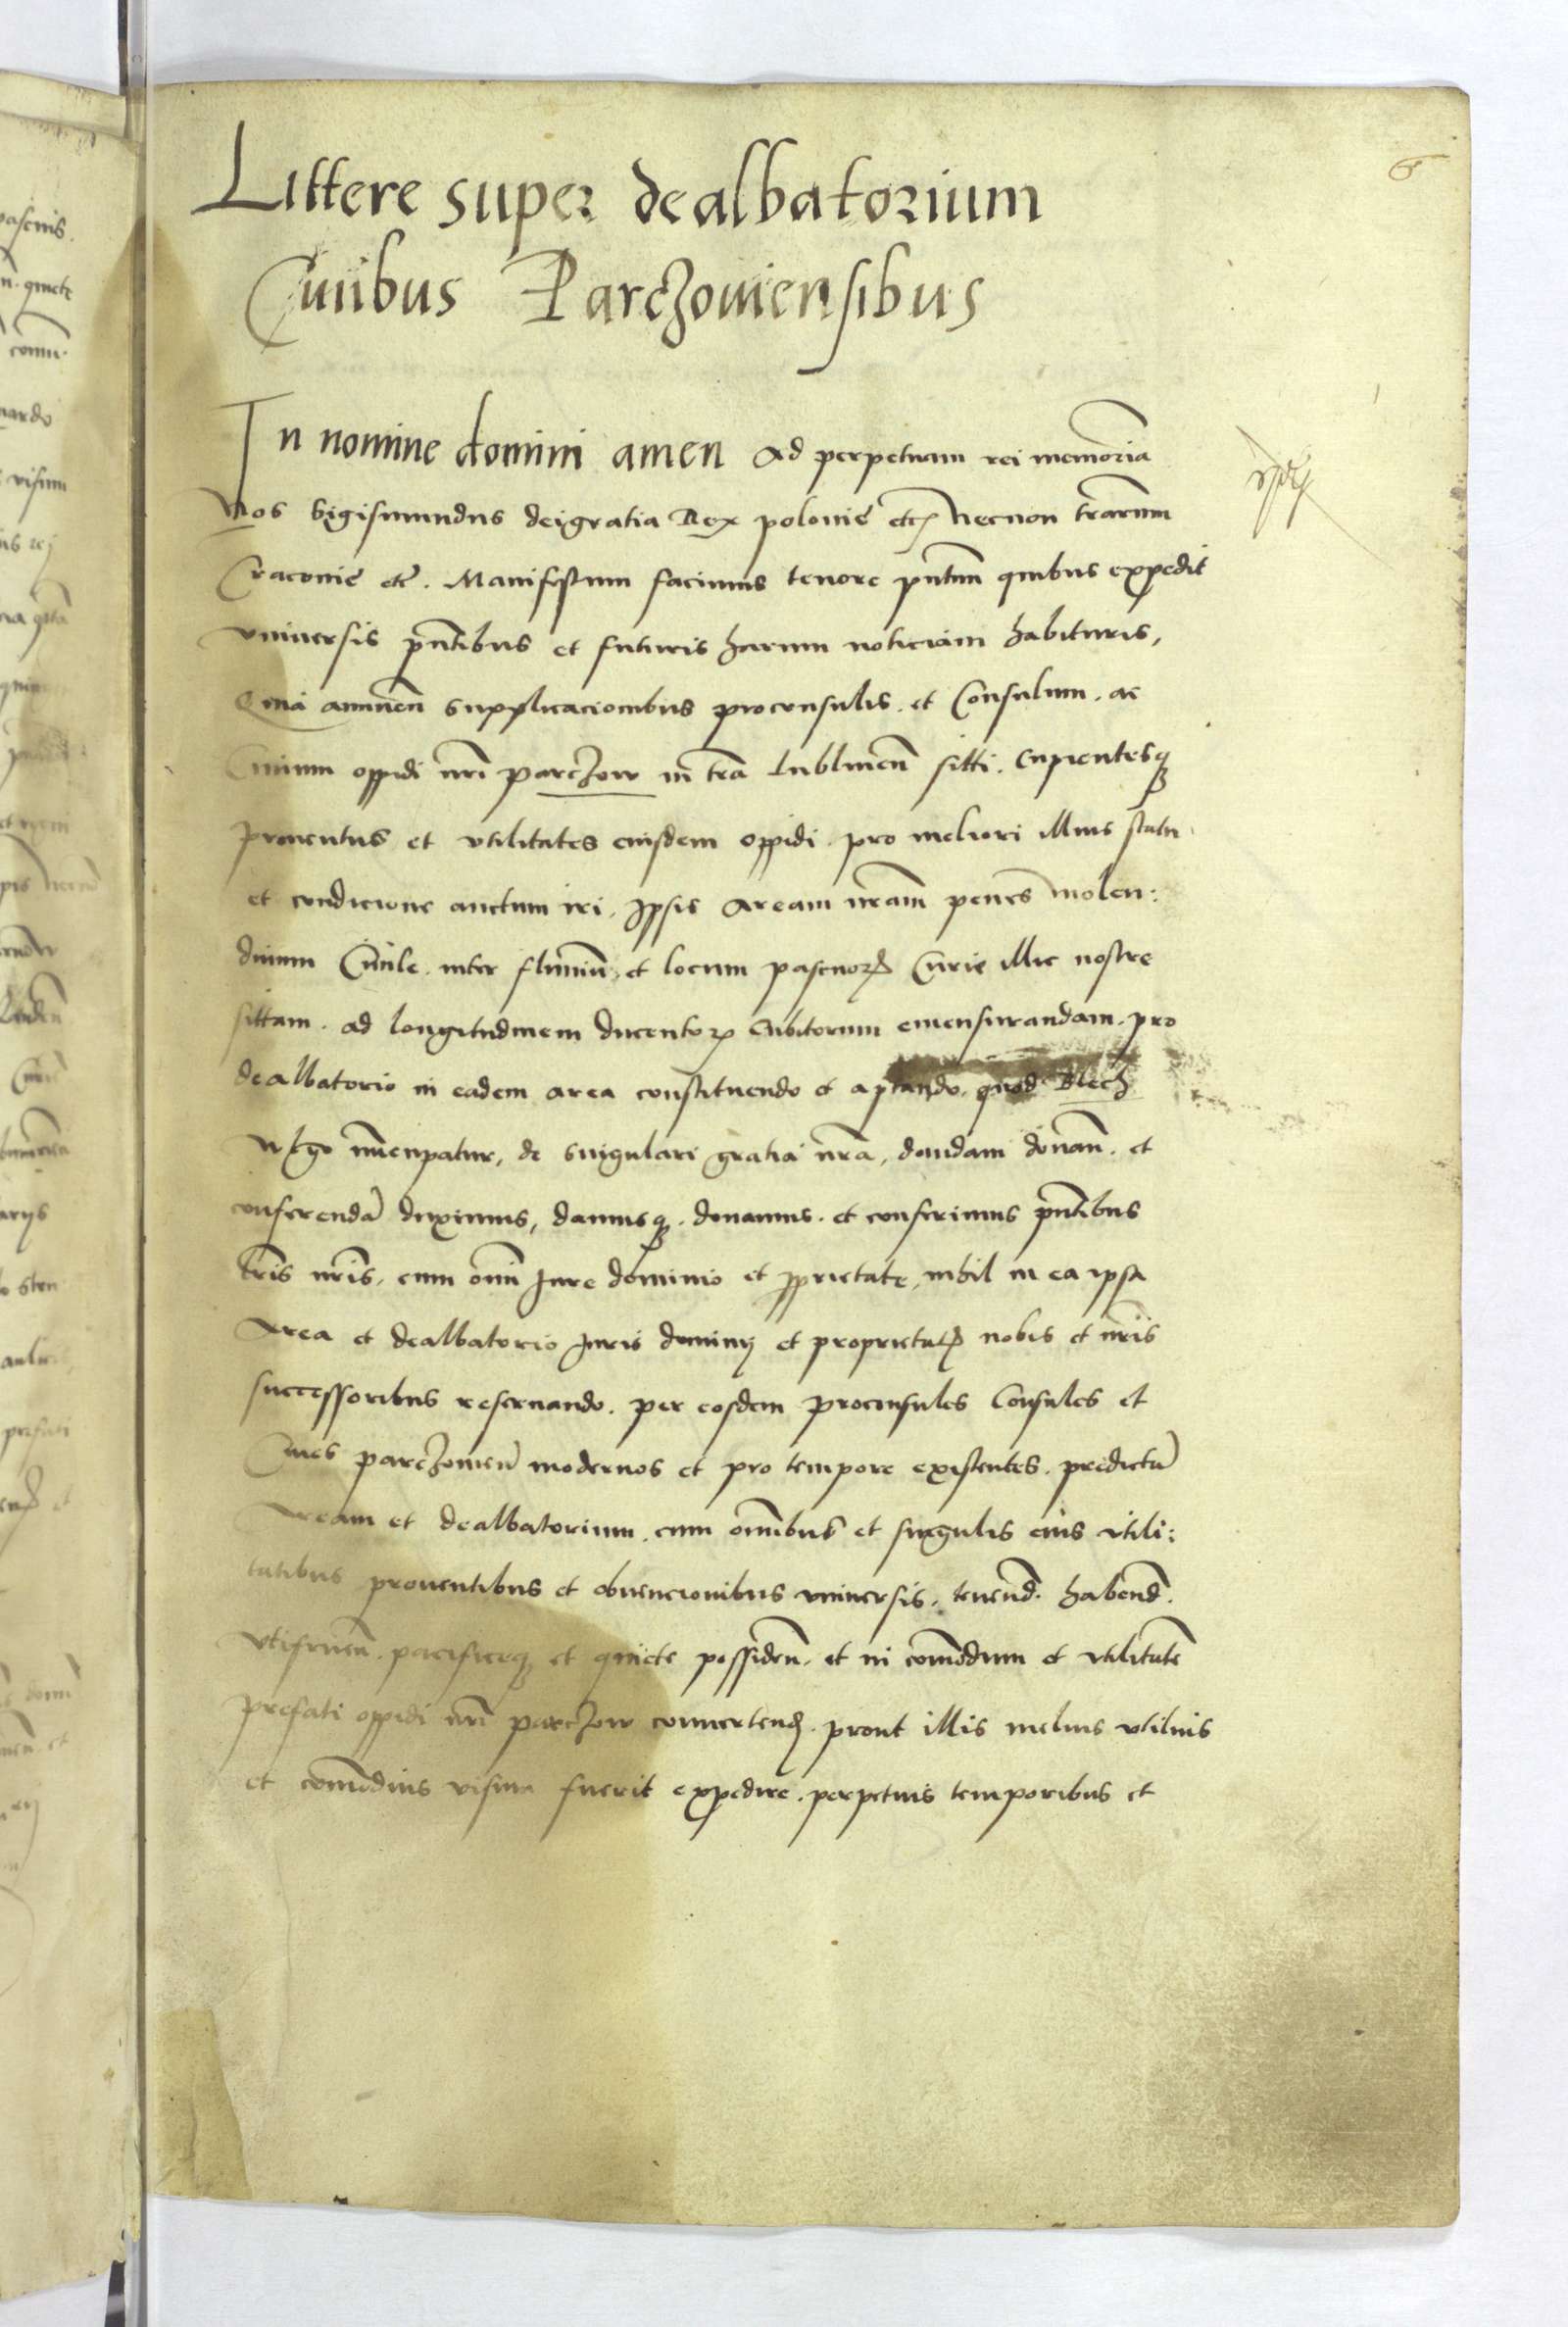 6
Littere super dealbatorium
Ciuibus Parczouiensibus
In nomine domini amen Ad perpetuam rei memoriā
Nos Sigismundus deigratia Rex polonie etc̄ necnon tr̄arum
Cracouie etc̄. Manifestum facimus tenore pn̄tium quibus expedit
vniuersis pn̄tibus et futuris harum noticiam habituris,
Quia annuen̄ supplicacionibus proconsulis. et Consulum. ac
Ciuium oppidi nr̄i parczow in tr̄a Lublinen̄ sitti. Cupientesqȝ
prouentus et vtilitates eiusdem oppidi. pro meliori illius statu
et condicione auctum iri, Ipsis Aream nr̄am penes molen:
dinum Ciuile. inter fluuiū, et locum pascuoꝝ Curie illic nostre
sittam. ad longitudinem ducentoꝝ Cubitorum emensurandam. pro
dealbatorio in eadem area constituendo et aptando, quod Blech
vlgo nūncupatur, de singulari gratia nr̄a, dandam donan̄. et
conferendā duximus, damusqȝ. donamus. et conferimus pn̄tibus
lr̄is nr̄is, cum om̄i Jure dominio et ꝓprietate, nihil in ea ipsa
Area et dealbatorio Juris dominij et proprietatꝭ nobis et nr̄is
successoribus reseruando. per eosdem proconsules Consules et
Ciues parczouien̄ modernos et pro tempore existentes. predictā
Aream et dealbatorium. cum om̄ibus et singulis eius vtili:
tatibus prouentibus et obuencionibus vniuersis. tenend̄. habend̄.
vtifruen̄. pacificeqȝ et quiete possiden̄. et in com̄odum et vtilitatē
prefati oppidi nr̄i parczow conuertenđ. prout illis melius vtilius
et com̄odius visum fuerit expedire. perpetuis temporibus et